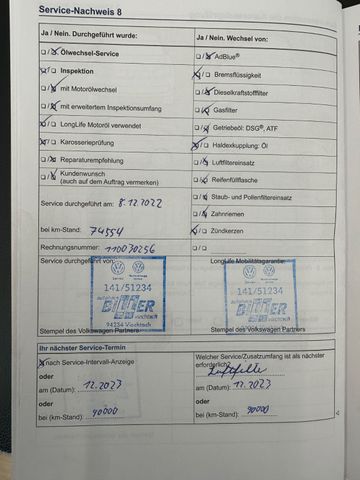 Service-Nachweis 8
Ja / Nein. Durchgeführt wurde:
Ja / Nein. Wechsel von:
Ölwechsel-Service
AdBlue®
Inspektion
Bremsflüssigkeit
mit Motorölwechsel
Dieselkraftstofffilter
mit erweitertem Inspektionsumfang
Gasfilter
LongLife Motoröl verwendet
Getriebeöl: DSG®, ATF
Karosserieprüfung
Haldexkupplung: Öl
Reparaturempfehlung
Luftfiltereinsatz
Kundenwunsch
(auch auf dem Auftrag vermerken)
Reifenfüllflasche
Staub- und Pollenfiltereinsatz
Service durchgeführt am: 8.12.2022
Zahnriemen
bei km-Stand: 74554
Zündkerzen
Rechnungsnummer: 110030256
Service durchgeführt von:
LongLife Mobilitätsgarantie
141/51234
autohaus
BINER
viechtach
94234 Viechtach
141/51234
viechtach
Stempel des Volkswagen Partners
Stempel des Volkswagen Partners
Ihr nächster Service-Termin
nach Service-Intervall-Anzeige
Welcher Service/Zusatzumfang ist als nächster
erforderlich?
Luftfilter
oder
oder
am (Datum): 12.2023
am (Datum): 12.2023
oder
oder
bei (km-Stand): 90000
bei (km-Stand): 90000